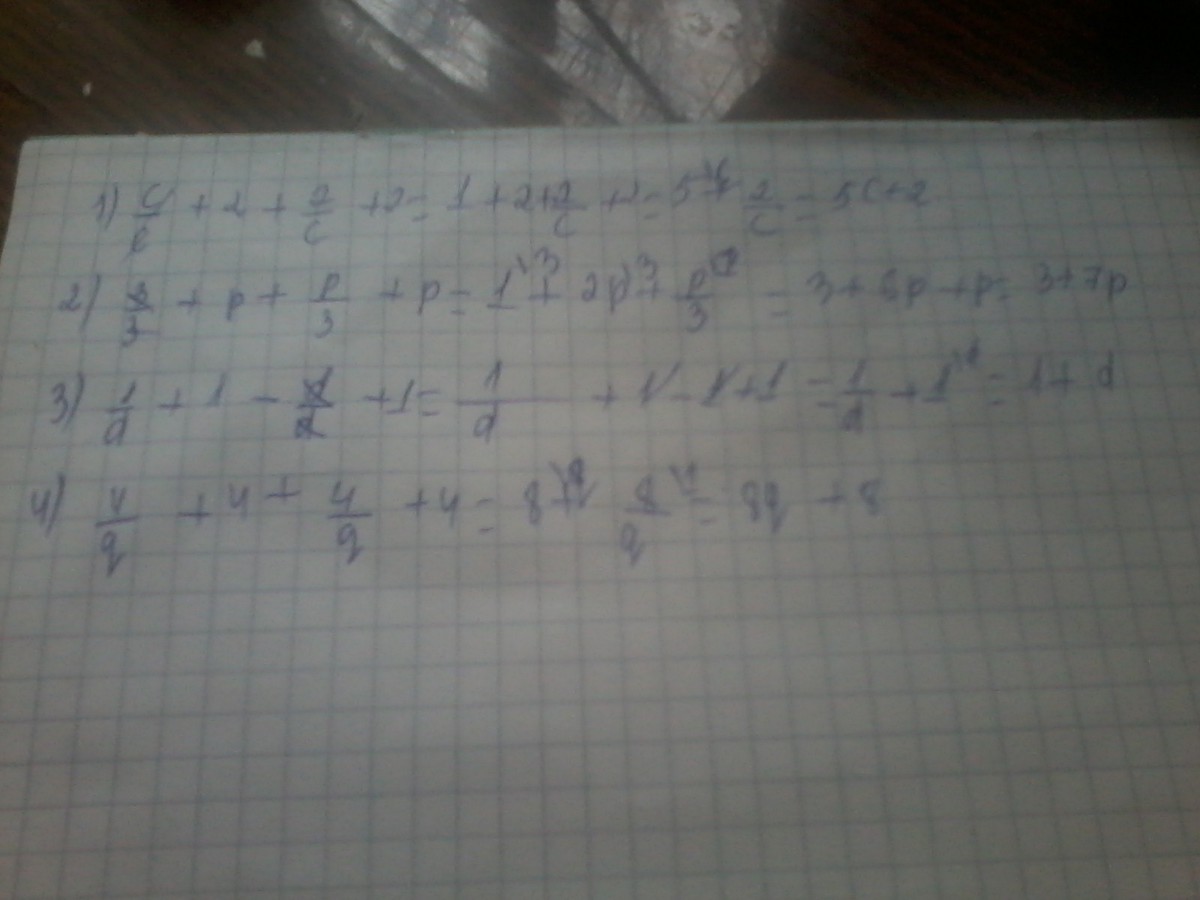 1) c/c + 2 + 2/c + 2 = 1 + 2 + 2/c + 2 = 5\c + 2/c = 5c + 2
2) 3/3 + p + p/3 + p = 1\3 + 2p\3 + p/3 = 3 + 6p + p = 3 + 7p
3) 1/d + 1 - d/d + 1 = 1/d + 1 - 1 + 1 = 1/d + 1\d = 1 + d
4) 4/q + 4 + 4/q + 4 = 8\q + 8/q\1 = 8q + 8